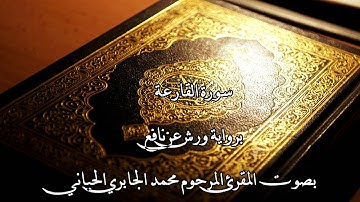 سورة القارعة
برواية ورش عن نافع
بصوت المقرئ المرحوم محمد الجابري الحياني